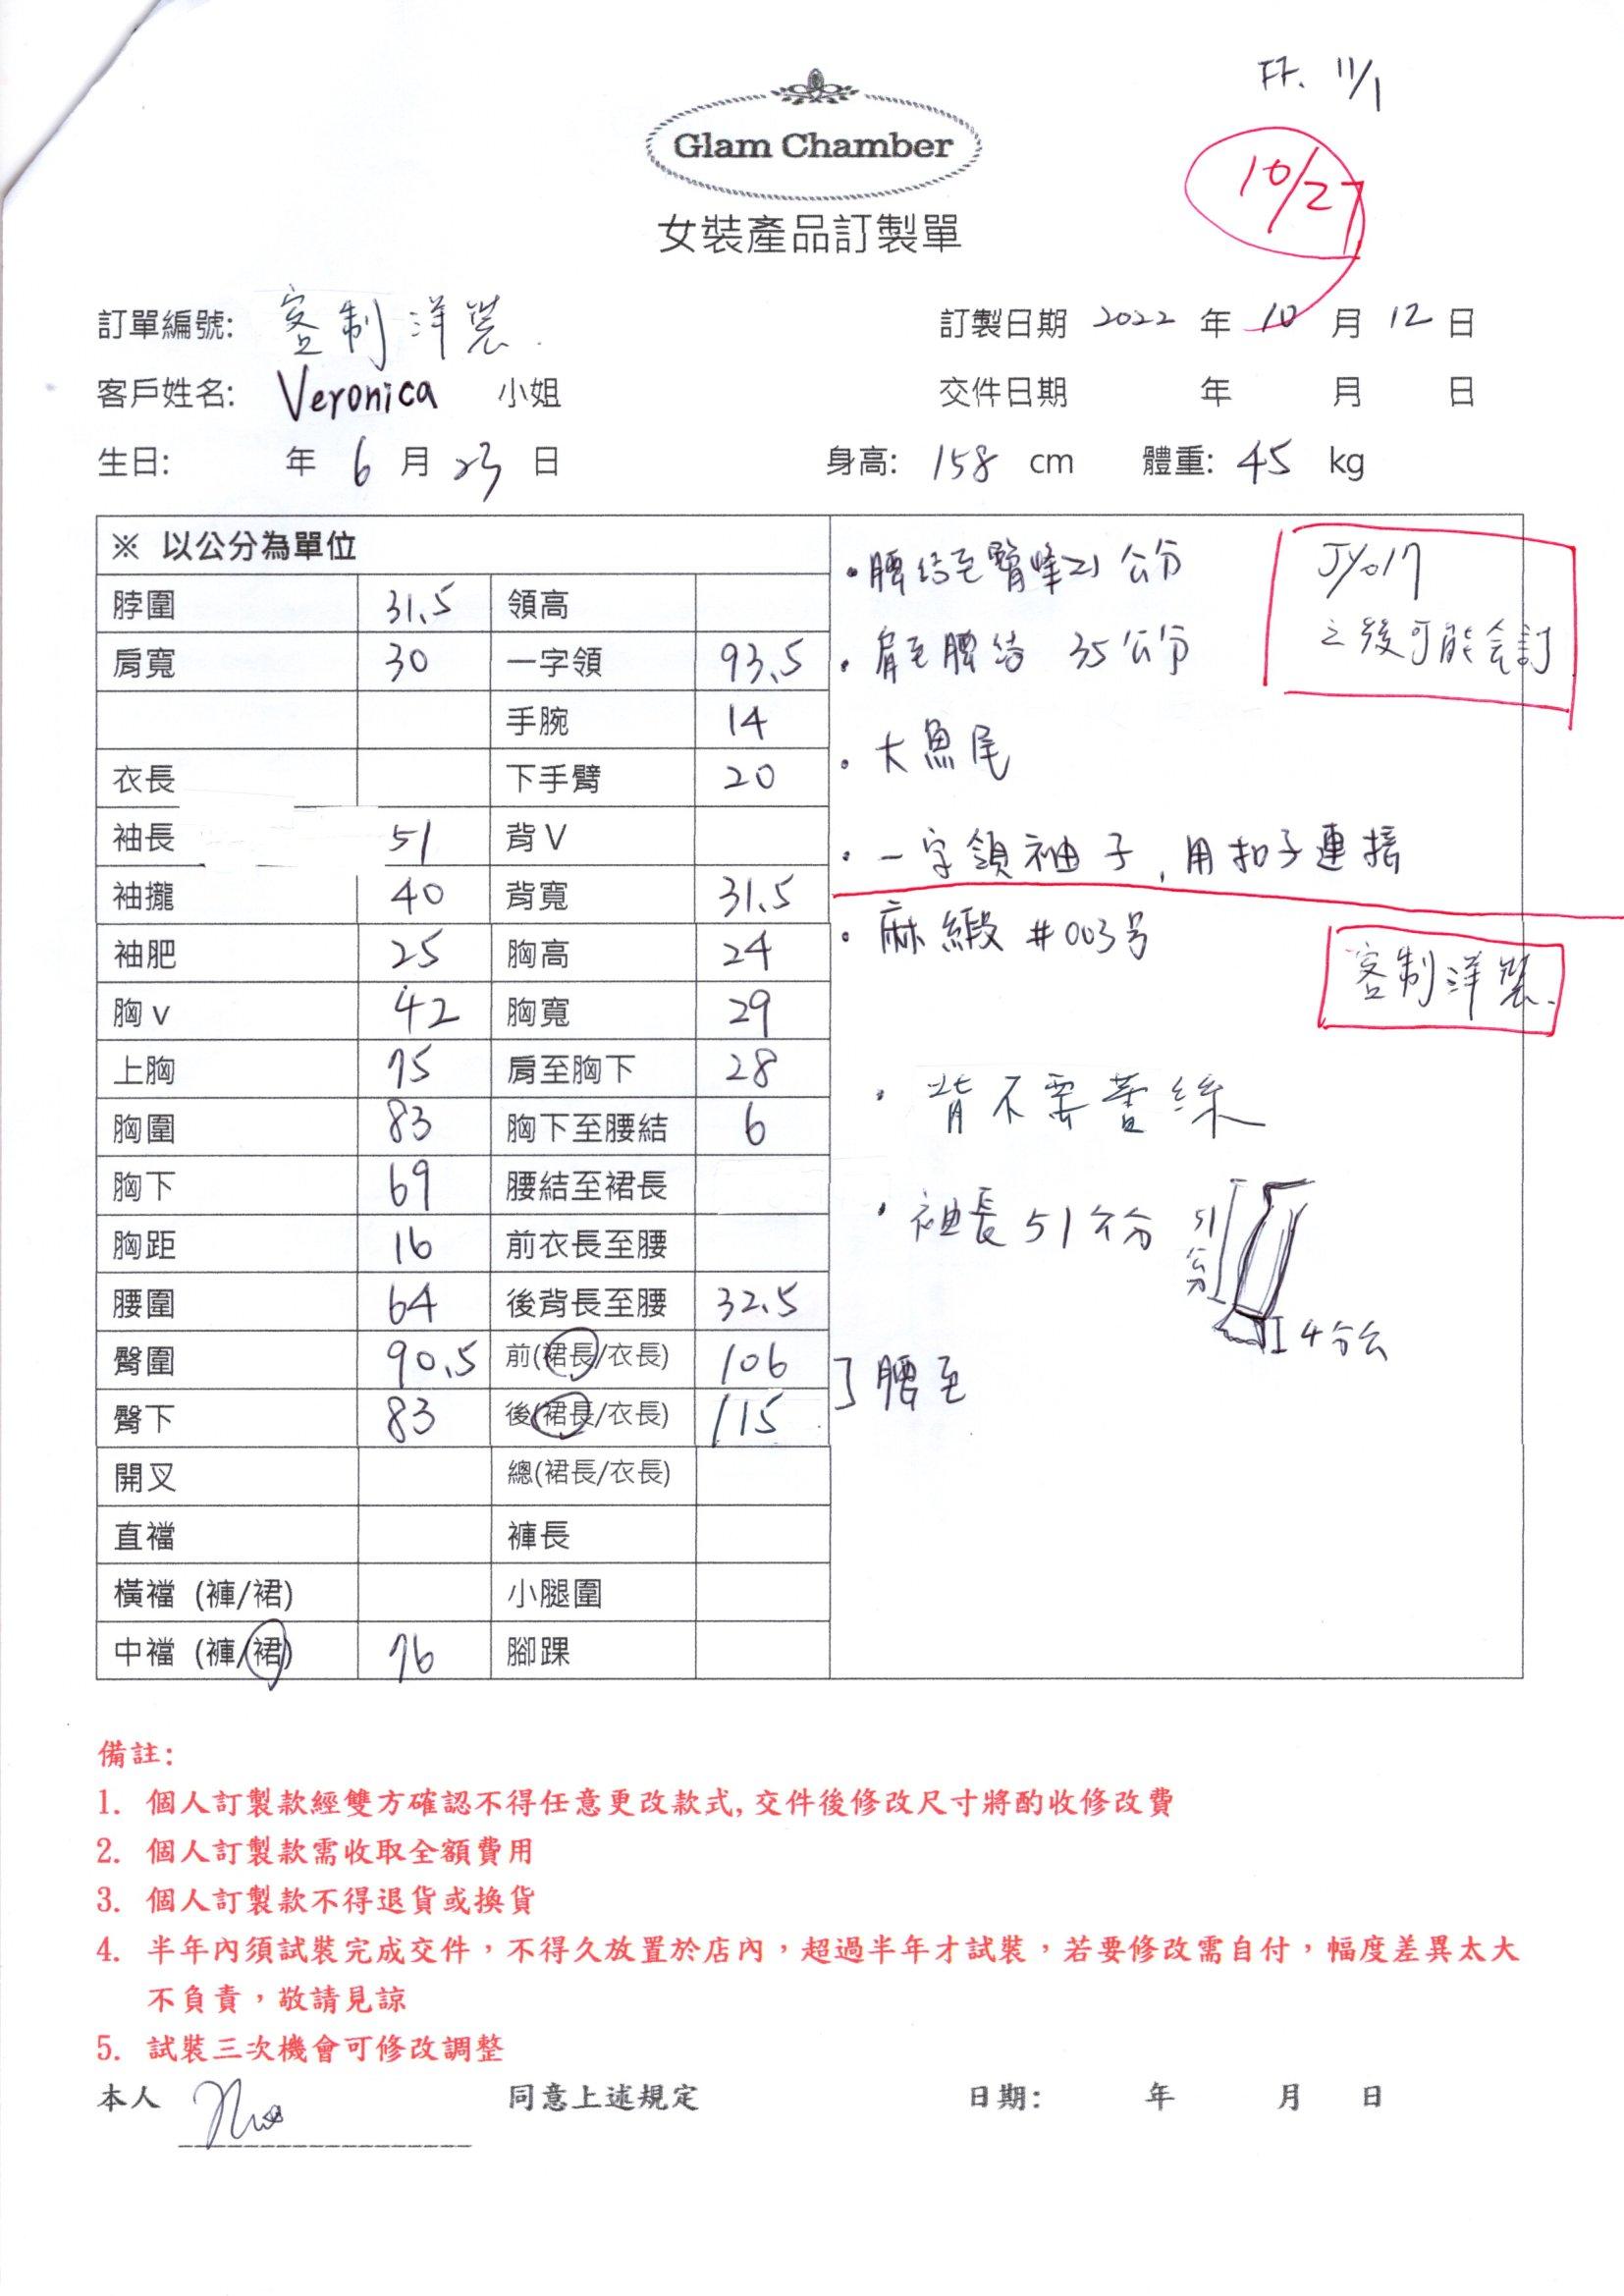 FF. 11/1
Glam Chamber
10/27
女裝產品訂製單
訂單編號: 客制洋裝.
訂製日期 2022 年 10 月 12 日
客戶姓名: Veronica 小姐
交件日期 年 月 日
生日: 年 6 月 23 日
身高: 158 cm 體重: 45 kg
※ 以公分為單位
脖圍 31.5 領高
肩寬 30 一字領 93.5
手腕 14
衣長 下手臂 20
袖長 51 背V
袖攏 40 背寬 31.5
袖肥 25 胸高 24
胸v 42 胸寬 29
上胸 75 肩至胸下 28
胸圍 83 胸下至腰結 6
胸下 69 腰結至裙長
胸距 16 前衣長至腰
腰圍 64 後背長至腰 32.5
臀圍 90.5 前(裙長/衣長) 106
臀下 83 後(裙長/衣長) 115
開叉 總(裙長/衣長)
直襠 褲長
橫襠 (褲/裙) 小腿圍
中襠 (褲/裙) 76 腳踝
•腰结至臀峰21公分
JY017
之後可能会訂
•肩至腰结 35公分
•大魚尾
•一字領袖子,用扣子連接
•麻緞 #003号
客制洋裝.
•背不要蕾絲
•袖長51公分
51公分
4公分
腰至
備註:
1. 個人訂製款經雙方確認不得任意更改款式,交件後修改尺寸將酌收修改費
2. 個人訂製款需收取全額費用
3. 個人訂製款不得退貨或換貨
4. 半年內須試裝完成交件,不得久放置於店內,超過半年才試裝,若要修改需自付,幅度差異太大
不負責,敬請見諒
5. 試裝三次機會可修改調整
本人 同意上述規定 日期: 年 月 日